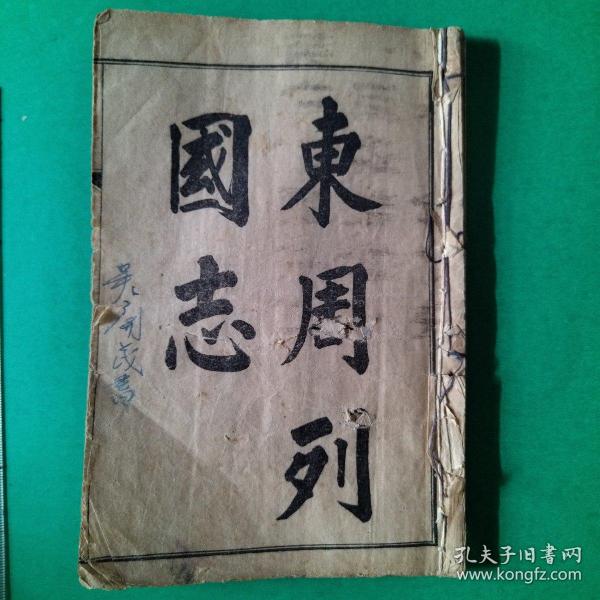 東周列
國志
孔夫子旧書网
www.kongfz.com